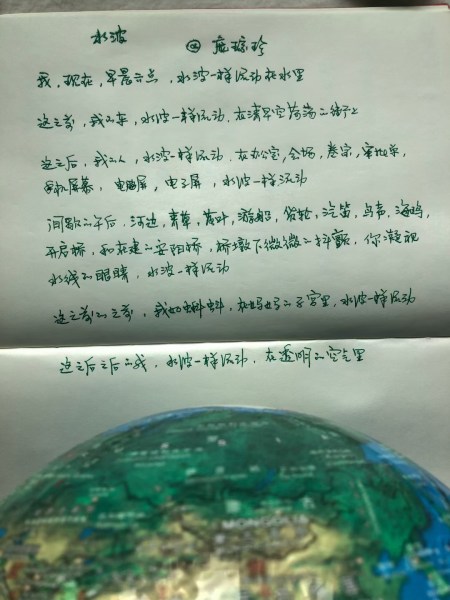 水波
@庞琼珍
我,现在,早晨六点,水波一样流动在水里
这之前,我的车,水波一样流动,在清早空荡荡的街上
这之后,我的人,水波一样流动,在办公室,会场,卷宗,审批单,
手机屏幕,电脑屏,电子屏,水波一样流动
间歇的午后,河边,青草,落叶,游船,货轮,汽笛,鸟赤,海鸥,
开启桥,和在建的安阳桥,桥墩下微微的抖颤,你凝视
水线的眼睛,水波一样流动
这之前的之前,我如蝌蚪,在妈妈的子宫里,水波一样流动
这之后之后的我,水波一样流动,在透明的空气里
MONGOLIA